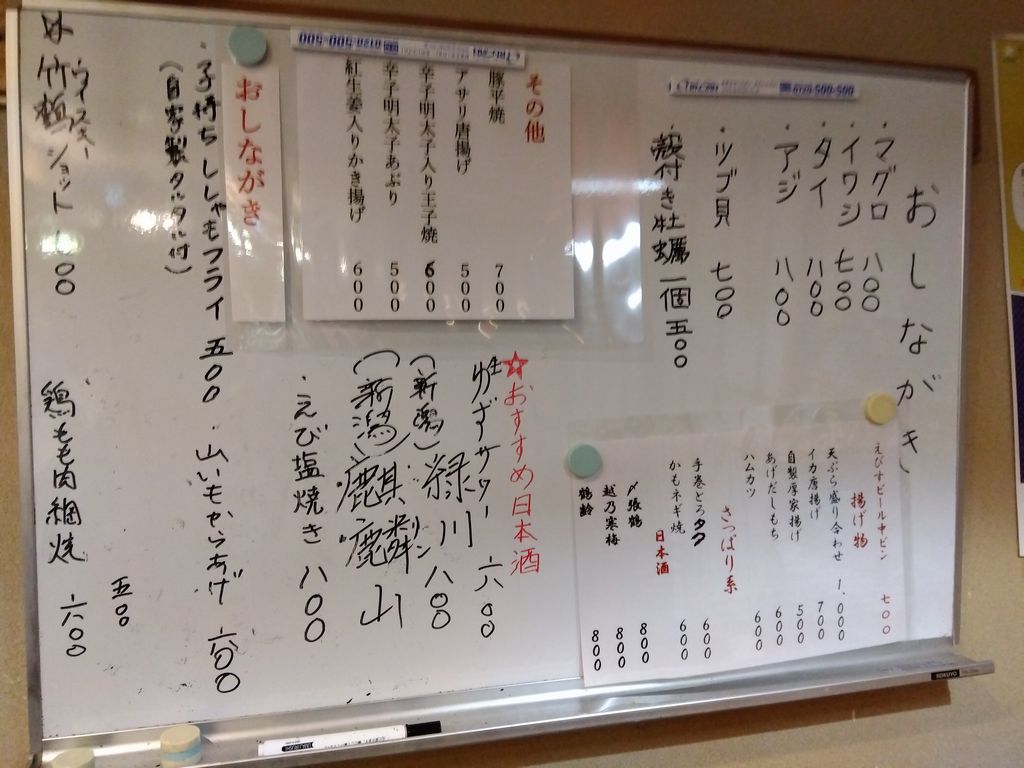 おしながき
・マグロ 八〇〇
・イワシ 七〇〇
・タイ 八〇〇
・アジ 八〇〇
・ツブ貝 七〇〇
・殻付き牡蠣一個五〇〇
その他
豚平焼 700
アサリ唐揚げ 500
辛子明太子入り玉子焼 600
辛子明太子あぶり 500
紅生姜入りかき揚げ 600
おしながき
・子持ちししゃもフライ 五〇〇
(自家製タルタル付)
ウイスキー
竹鶴ショット
えびすビール中ビン 七〇〇
揚げ物
天ぷら盛り合わせ 1.000
イカ唐揚げ 700
自製厚家揚げ 500
あげだしもち 600
ハムカツ 600
さっぱり系
手巻とろタク 600
かもネギ焼 600
日本酒
〆張鶴 800
越乃寒梅 800
鶴齢 800
☆おすすめ日本酒
ゆずサワー 六〇〇
(新潟) 緑川 八〇〇
(新潟) 麒麟山
リン
・えび塩焼き 八〇〇
・山いもからあげ 六〇〇
五〇〇
・鶏もも肉網焼 六〇〇
0120-500-500
0120-500-500
KOKUYO